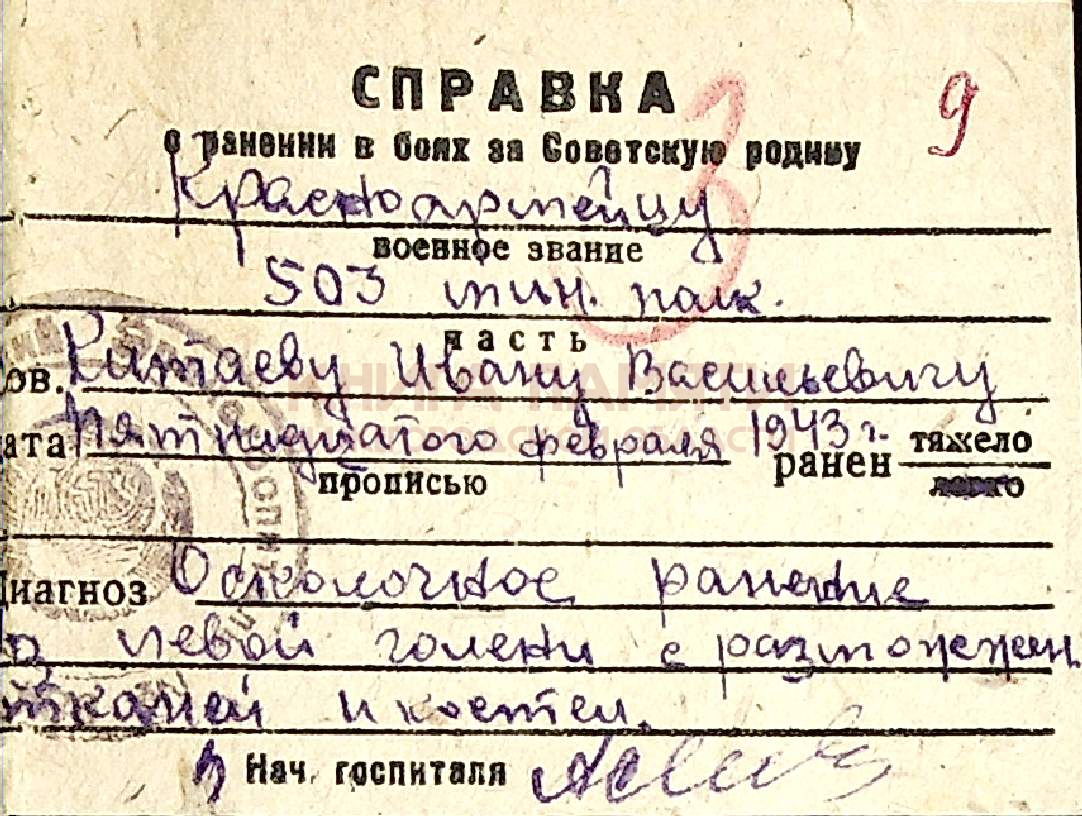 СПРАВКА
9
3
о ранении в боях за Советскую родину
Красноармейцу
военное звание
503 мин. полк.
часть
ов. Китаеву Ивану Васильевичу
КНИГА ПАМЯТИ
ата Пятнадцатого февраля 1943 г. ранен тяжело
легко
прописью
Диагноз Осколочное ранение
левой голени с размозжен.
тканей и костей.
Нач. госпиталя